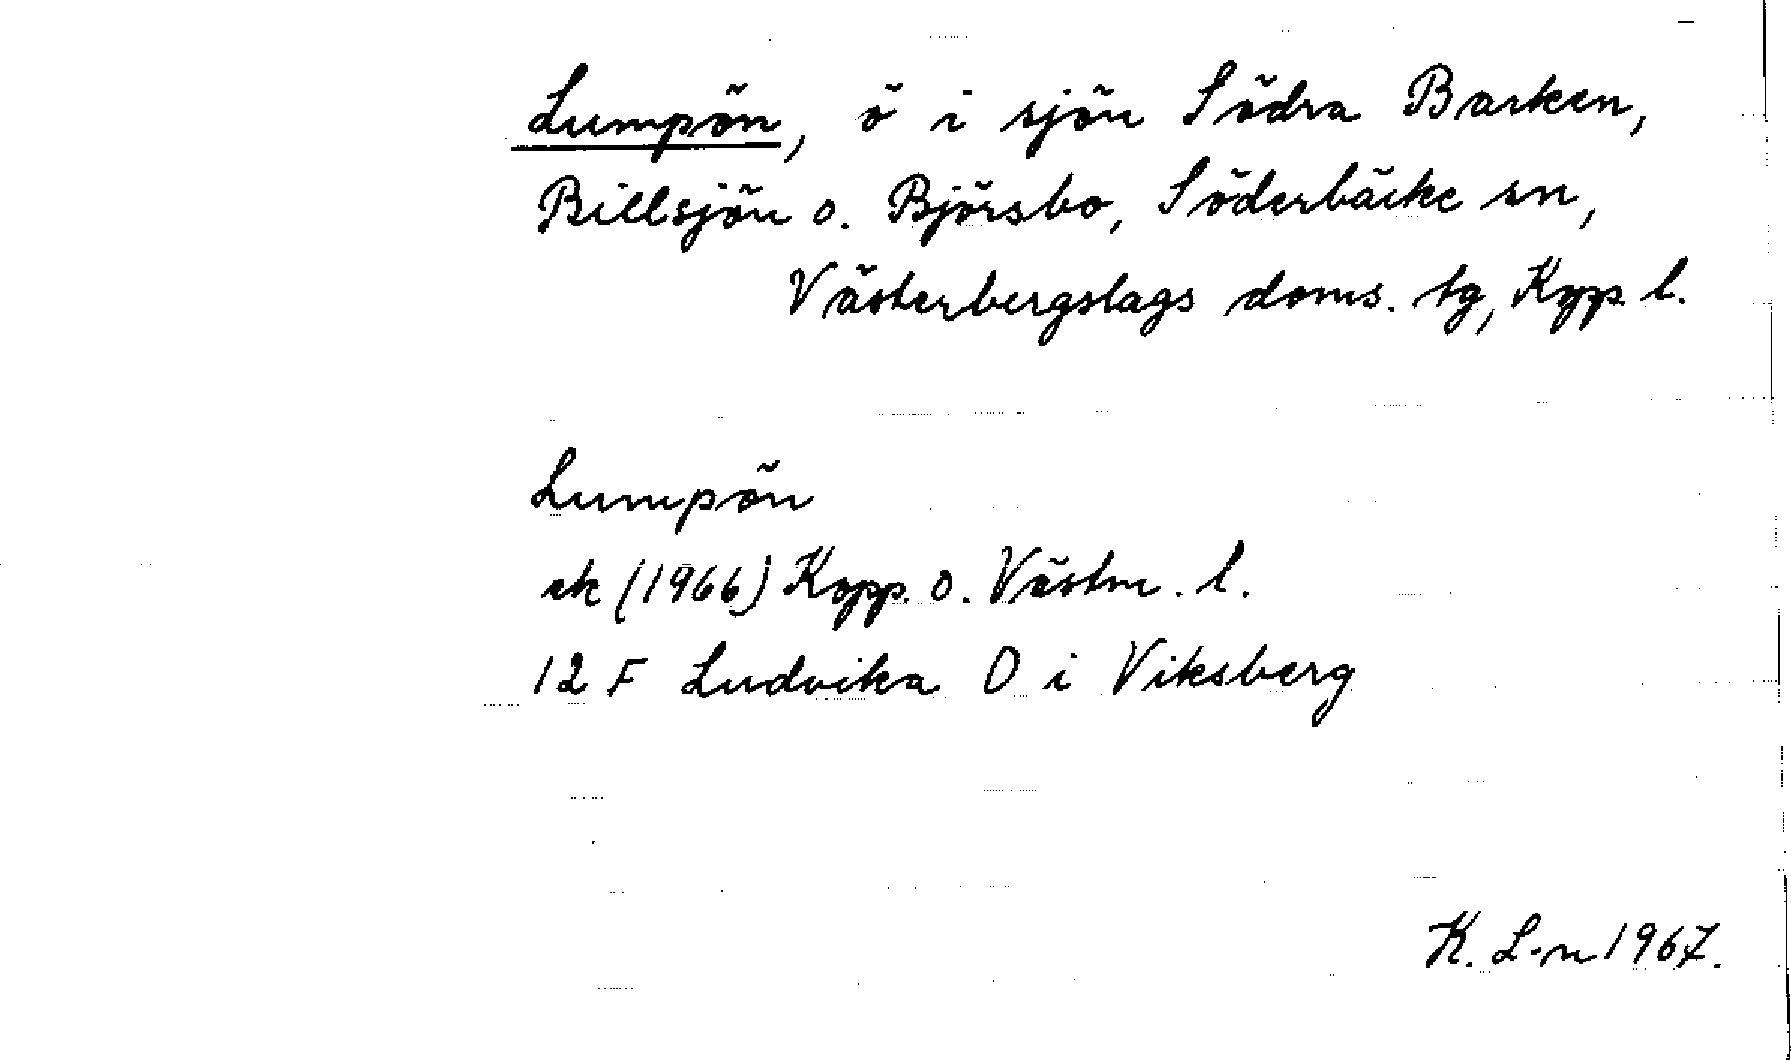 Lumpön, ö i sjön Södra Barken,
Billsjön o. Björsbo, Söderbärke sn,
Västerbergslags doms. tg, Kopp. l.
Lumpön
ek (1966) Kopp. o. Västm. l.
12 F Ludvika O i Viksberg
K. L-n 1967.